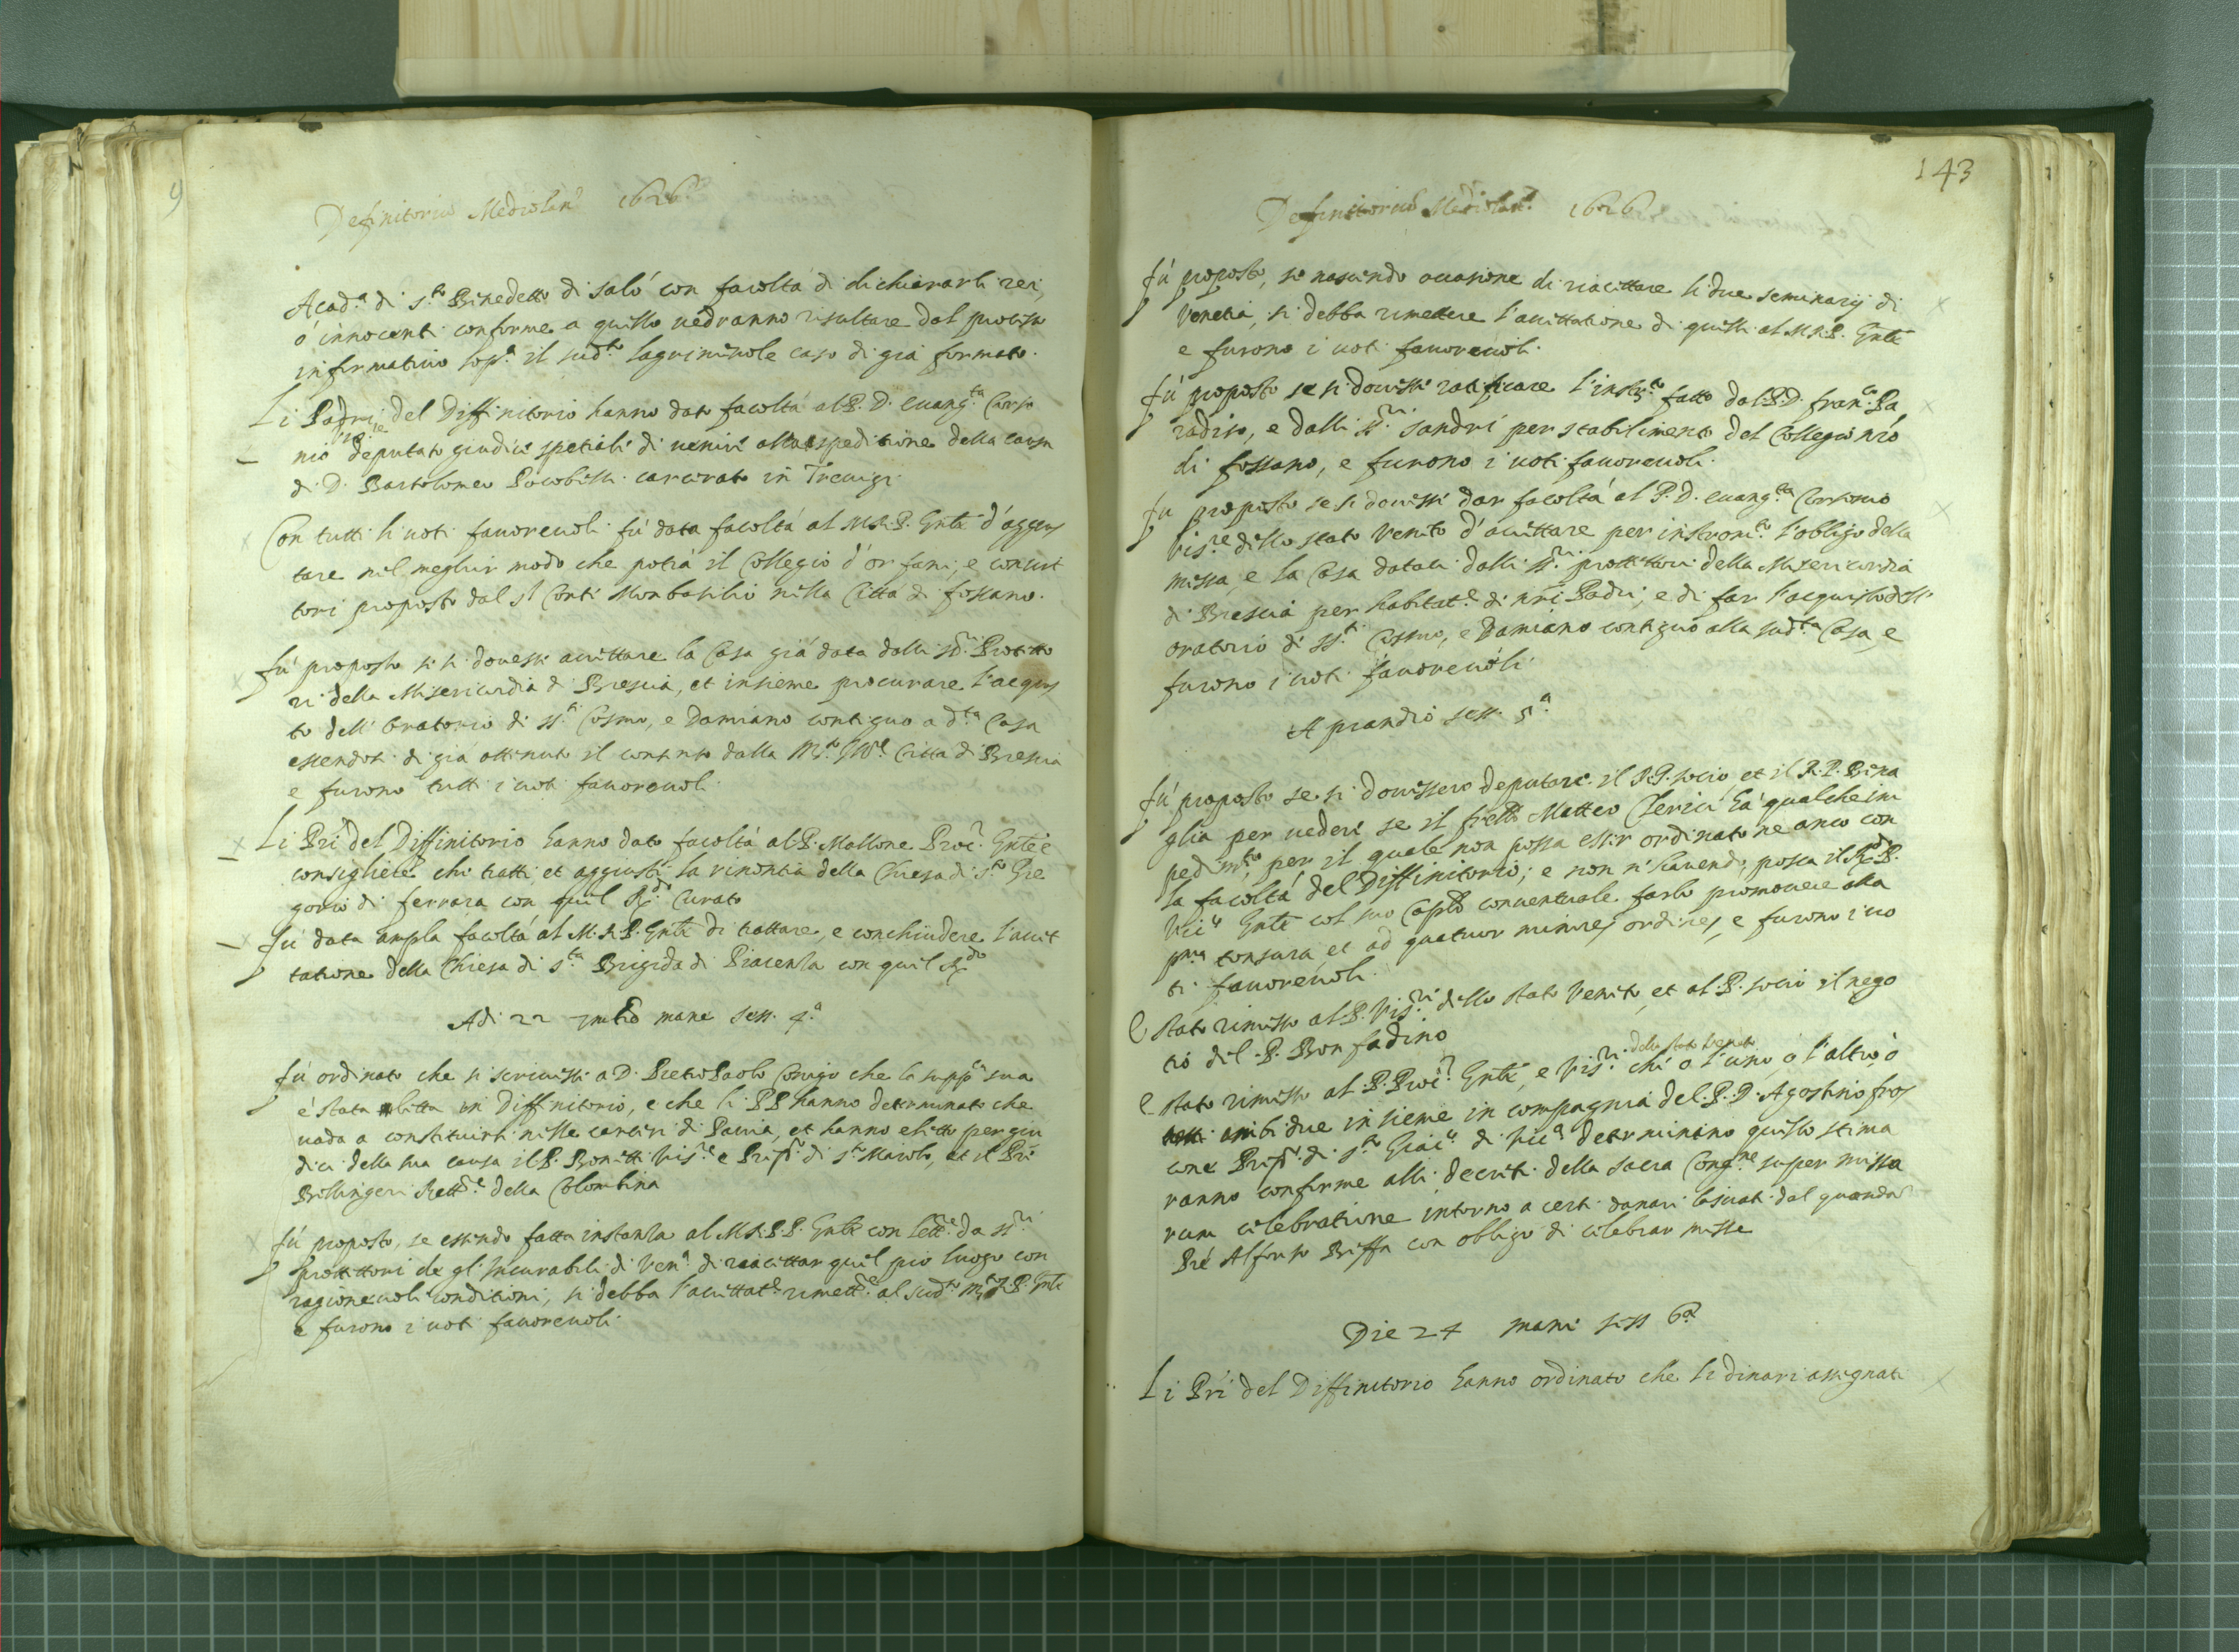 9
Definitoriũ Mediolanẽ 1626
Acad.ª di S.to Benedetto di Salò con facoltà di dichiararli rei,
ò innocenti conforme a quello vedranno risultare dal processo
informativo sop.ª il sud.to lagrimevole caso di già formato.
Li Padri del Diffinitorio hanno dato facoltà al P. D. Evang.ta Corso
nio Vis.re deputato giudice spetiale di venire alla speditione della causa
di D. Bartolomeo Bocobelli carcerato in Trevigi
Con tutti li voti favorevoli fù data facoltà al M.R.P. Gñle d'aggius
tare nel meglior modo che potrà il Collegio d'orfani, e convit
tori proposto dal s.r Conte Monbasilio nella Città di fossano.
fù proposto se si dovesse accettare la Casa già data dalli ss.ri Protetto
ri della Misericordia di Brescia, et insieme procurare l'acquis
to dell'Oratorio di ss.ti Cosmo, e Damiano contiguo a d.ta Casa
essendosi di già ottenuto il contento dalla M.to Ill.e Città di Brescia
e furono tutti i voti favorevoli.
Li Pri del Diffinitorio hanno dato facoltà al P. Mallone Proc.r Gñle e
consigliere che tratti et aggiusti la rinontia della Chiesa di S.to Gre
gorio di ferrara con quel R.do Curato
fù data ampla facoltà al M.R.P. Gñle di trattare, e conchiudere l'accet
tatione della Chiesa di S.ta Brigida di Piacenza con quel R.do
Adi 22 mane sess. 4.ª
fù ordinato che si scrivesse a D. Pietro Paolo Corigo che la supp.ca sua
è stata letta in Diffinitorio, e che li PP hanno determinato che
vada a constituirsi nelle carceri di Pavia, et hanno eletto per giu
dici della sua causa il P. Bonetti Vis.re e Prep.to di S.to Maiolo, et il Pre
Bellingeri Rett.re della Colombina
fù proposto, se essendo fatta instanza al M.R.P. Gñle con lett.re da ss.ri
protettori de gl'Incurabili di Ven.ª di reaccettar quel pio luogo con
ragionevoli conditioni, si debba l'accettat.e rimett.e al sud.to M.to R.P. Gñle
e furono i voti favorevoli
143
Definitoriũ Mediolanẽ 1626
fù proposto, se nascendo occasione di riaccettare li due seminarij di
Venetia, si debba rimettere l'accettatione di quelli al M.R.P. Gñle
e furono i voti favorevoli.
fù proposto se si dovesse ratificare l'instr.to fatto dal P. D. fran.co Pa
radiso, e dalli ss.ri Sandri per stabilimento del Collegio nro
di fossano, e furono i voti favorevoli.
fu proposto se si dovesse dar facoltà al P. D. Evang.ta Corsonio
Vis.re dello stato Veneto d'accettare per instrom.to l'obligo della
messa, e la Casa datali dalli ss.ri protettori della Misericordia
di Brescia per habitat.e di nri Padri, e di far l'acquisto dell'
oratorio di ss.ti Cosmo, e Damiano contiguo alla sud.ta Casa, e
furono i voti favorevoli.
A prandio sess. 5.ª
fù proposto se si dovessero deputare il P. P. socio, et il R. P. Bina
glia per vedere se il frello Matteo Clerici hà qualche im
pedim.to, per il quale non possa esser ordinato ne anco con
la facoltà del Diffinitorio; e non n'havendo, possa il R.do P.
Vic.o Gñle col suo Caplo conventuale farlo promovere alla
pma tonsura et ad quatuor minores ordines, e furono i vo
ti favorevoli.
È stato rimesso al P. Vis.re dello stato Veneto, et al P. socio il nego
tio del P. Bonfadino
È stato rimesso al P. Proc.r Gñle, e Vis.re dello stato Veneto chi o l'uno, o l'altro, ò
ambidue insieme in compagnia del P. D. Agostino fros
cone Prep.to di S.to Giac.o di Vic.ª determinino quello stima
ranno conforme alli decreti della sacra Cong.ne super missa
rum celebratione intorno a certi danari lasciati dal quondam
Pre Alfonso Biffa con obligo di celebrar messe
Die 24 mane sess 6ª
Li Pri del Diffinitorio hanno ordinato che li dinari assegnati